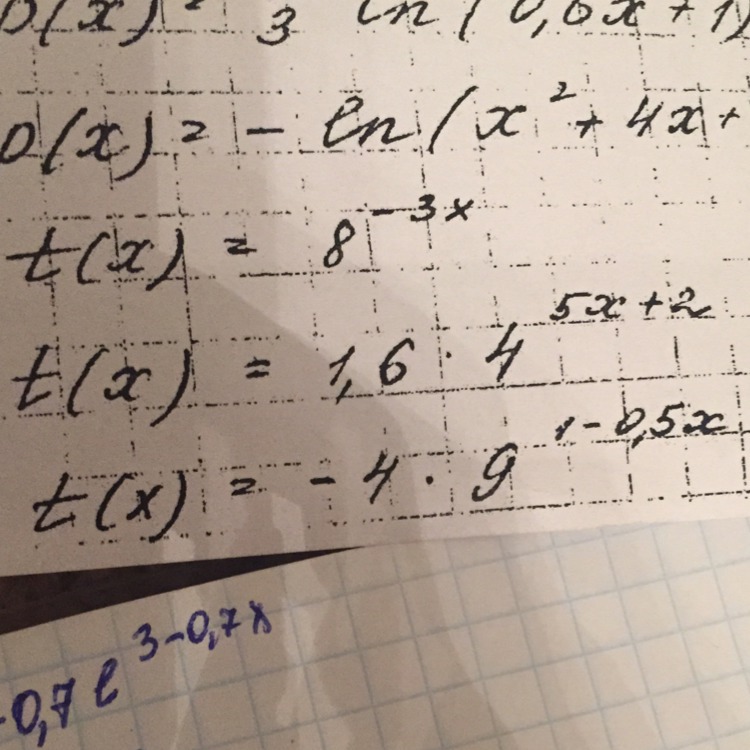 (x) = 3 ln(0,6x+1)
(x) = - ln(x² + 4x +
t(x) = 8^{-3x}
t(x) = 1,6 · 4^{5x+2}
t(x) = -4 · 9^{1-0,5x}
-0,7 e^{3-0,7x}